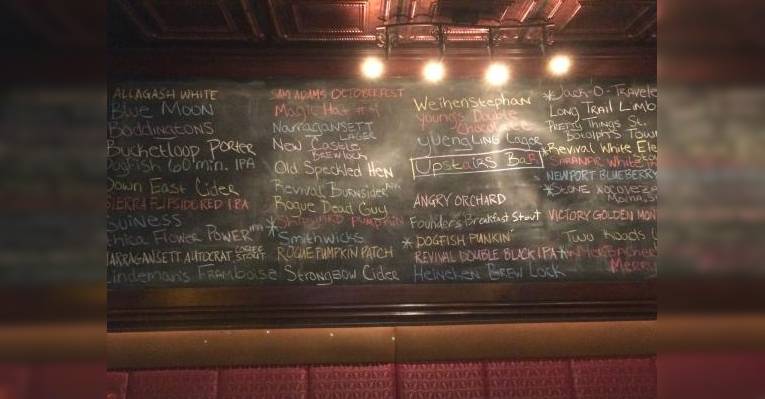 ALLAGASH WHITE
BLUE MOON
Boddingtons
Bucketloop Porter
Dogfish 60 min. IPA
Down East Cider
SIERRA FLIPSIDE RED IPA
GUINESS
Ithica Flower POWER
NARRAGANSETT AUTOCRAT COFFEE STOUT
Lindeman's Framboise
SAM ADAMS OCTOBERFEST
Magic Hat #9
Narragansett
LAGER
New Castle
BREWLOCK
Old Speckled Hen
Revival Burnsider
Rogue Dead Guy
SHIPYARD PUMPKIN
* Smithwicks
ROGUE PUMPKIN PATCH
Strongbow Cider
Weihenstephan
Young's Double
Chocolate
YUENGLING Lager
Upstairs Bar
ANGRY ORCHARD
Founders Breakfast Stout
* DOGFISH PUNKIN'
REVIVAL DOUBLE BLACK IPA
Heineken BREW LOCK
*Jack-O-Travele
Long Trail Limb
PRETTY THINGS St.
BOtolph's Town
Revival White Ele
SARANAC White
NEWPORT BLUEBERRY
*STONE XOCOVEZA
VICTORY GOLDEN MON
Two Roads
Merry